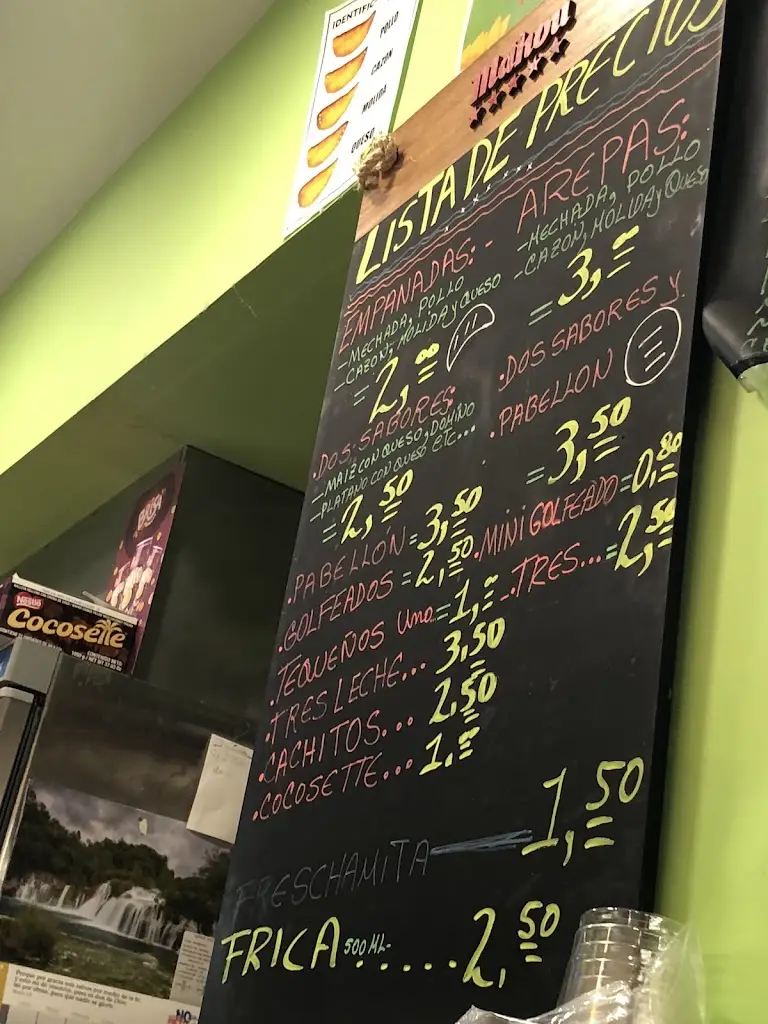 IDENTIFIC
POLLO
CAZÓN
MOLIDA
QUESO
Mahou
LISTA DE PRECIOS
EMPANADAS:-
-MECHADA, POLLO
-CAZON, MOLIDA y QUESO
=2,00
•DOS SABORES
-MAIZ CON QUESO, DOMINO
-PLATANO CON QUESO ETC...
=2,50
AREPAS:
-MECHADA, POLLO
-CAZON, MOLIDA y QUESO
=3,00
•DOS SABORES y
•PABELLON
=3,50
•PABELLÓN=3,50
•GOLFEADOS=2,50
•MINIGOLFEADO=0,80
•TEQUEÑOS Uno=1,00
-TRES...=2,50
•TRES LECHE...3,50
•CACHITOS...2,50
•COCOSETTE...1,00
FRESCHAMITA 1,50
FRICA 500 ML-.....2,50
Nestlé
Cocosette
NO